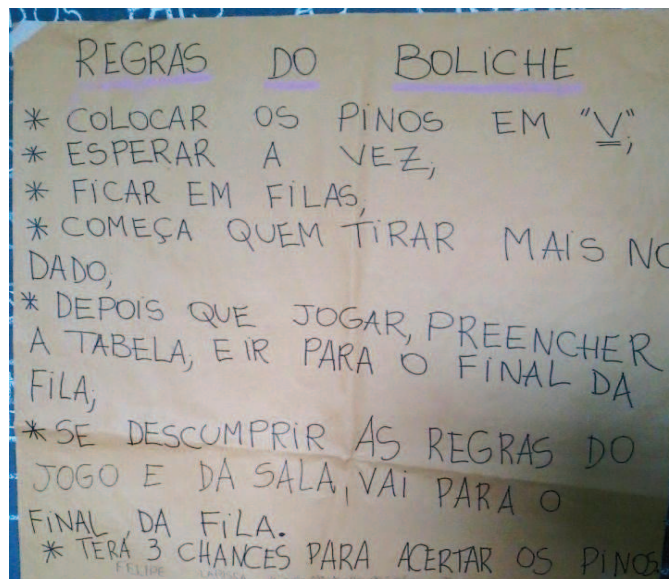 REGRAS DO BOLICHE
* COLOCAR OS PINOS EM "V";
* ESPERAR A VEZ;
* FICAR EM FILAS;
* COMEÇA QUEM TIRAR MAIS NO
DADO;
* DEPOIS QUE JOGAR, PREENCHER
A TABELA, E IR PARA O FINAL DA
FILA;
* SE DESCUMPRIR AS REGRAS DO
JOGO E DA SALA, VAI PARA O
FINAL DA FILA.
* TERÁ 3 CHANCES PARA ACERTAR OS PINOS
FELIPE